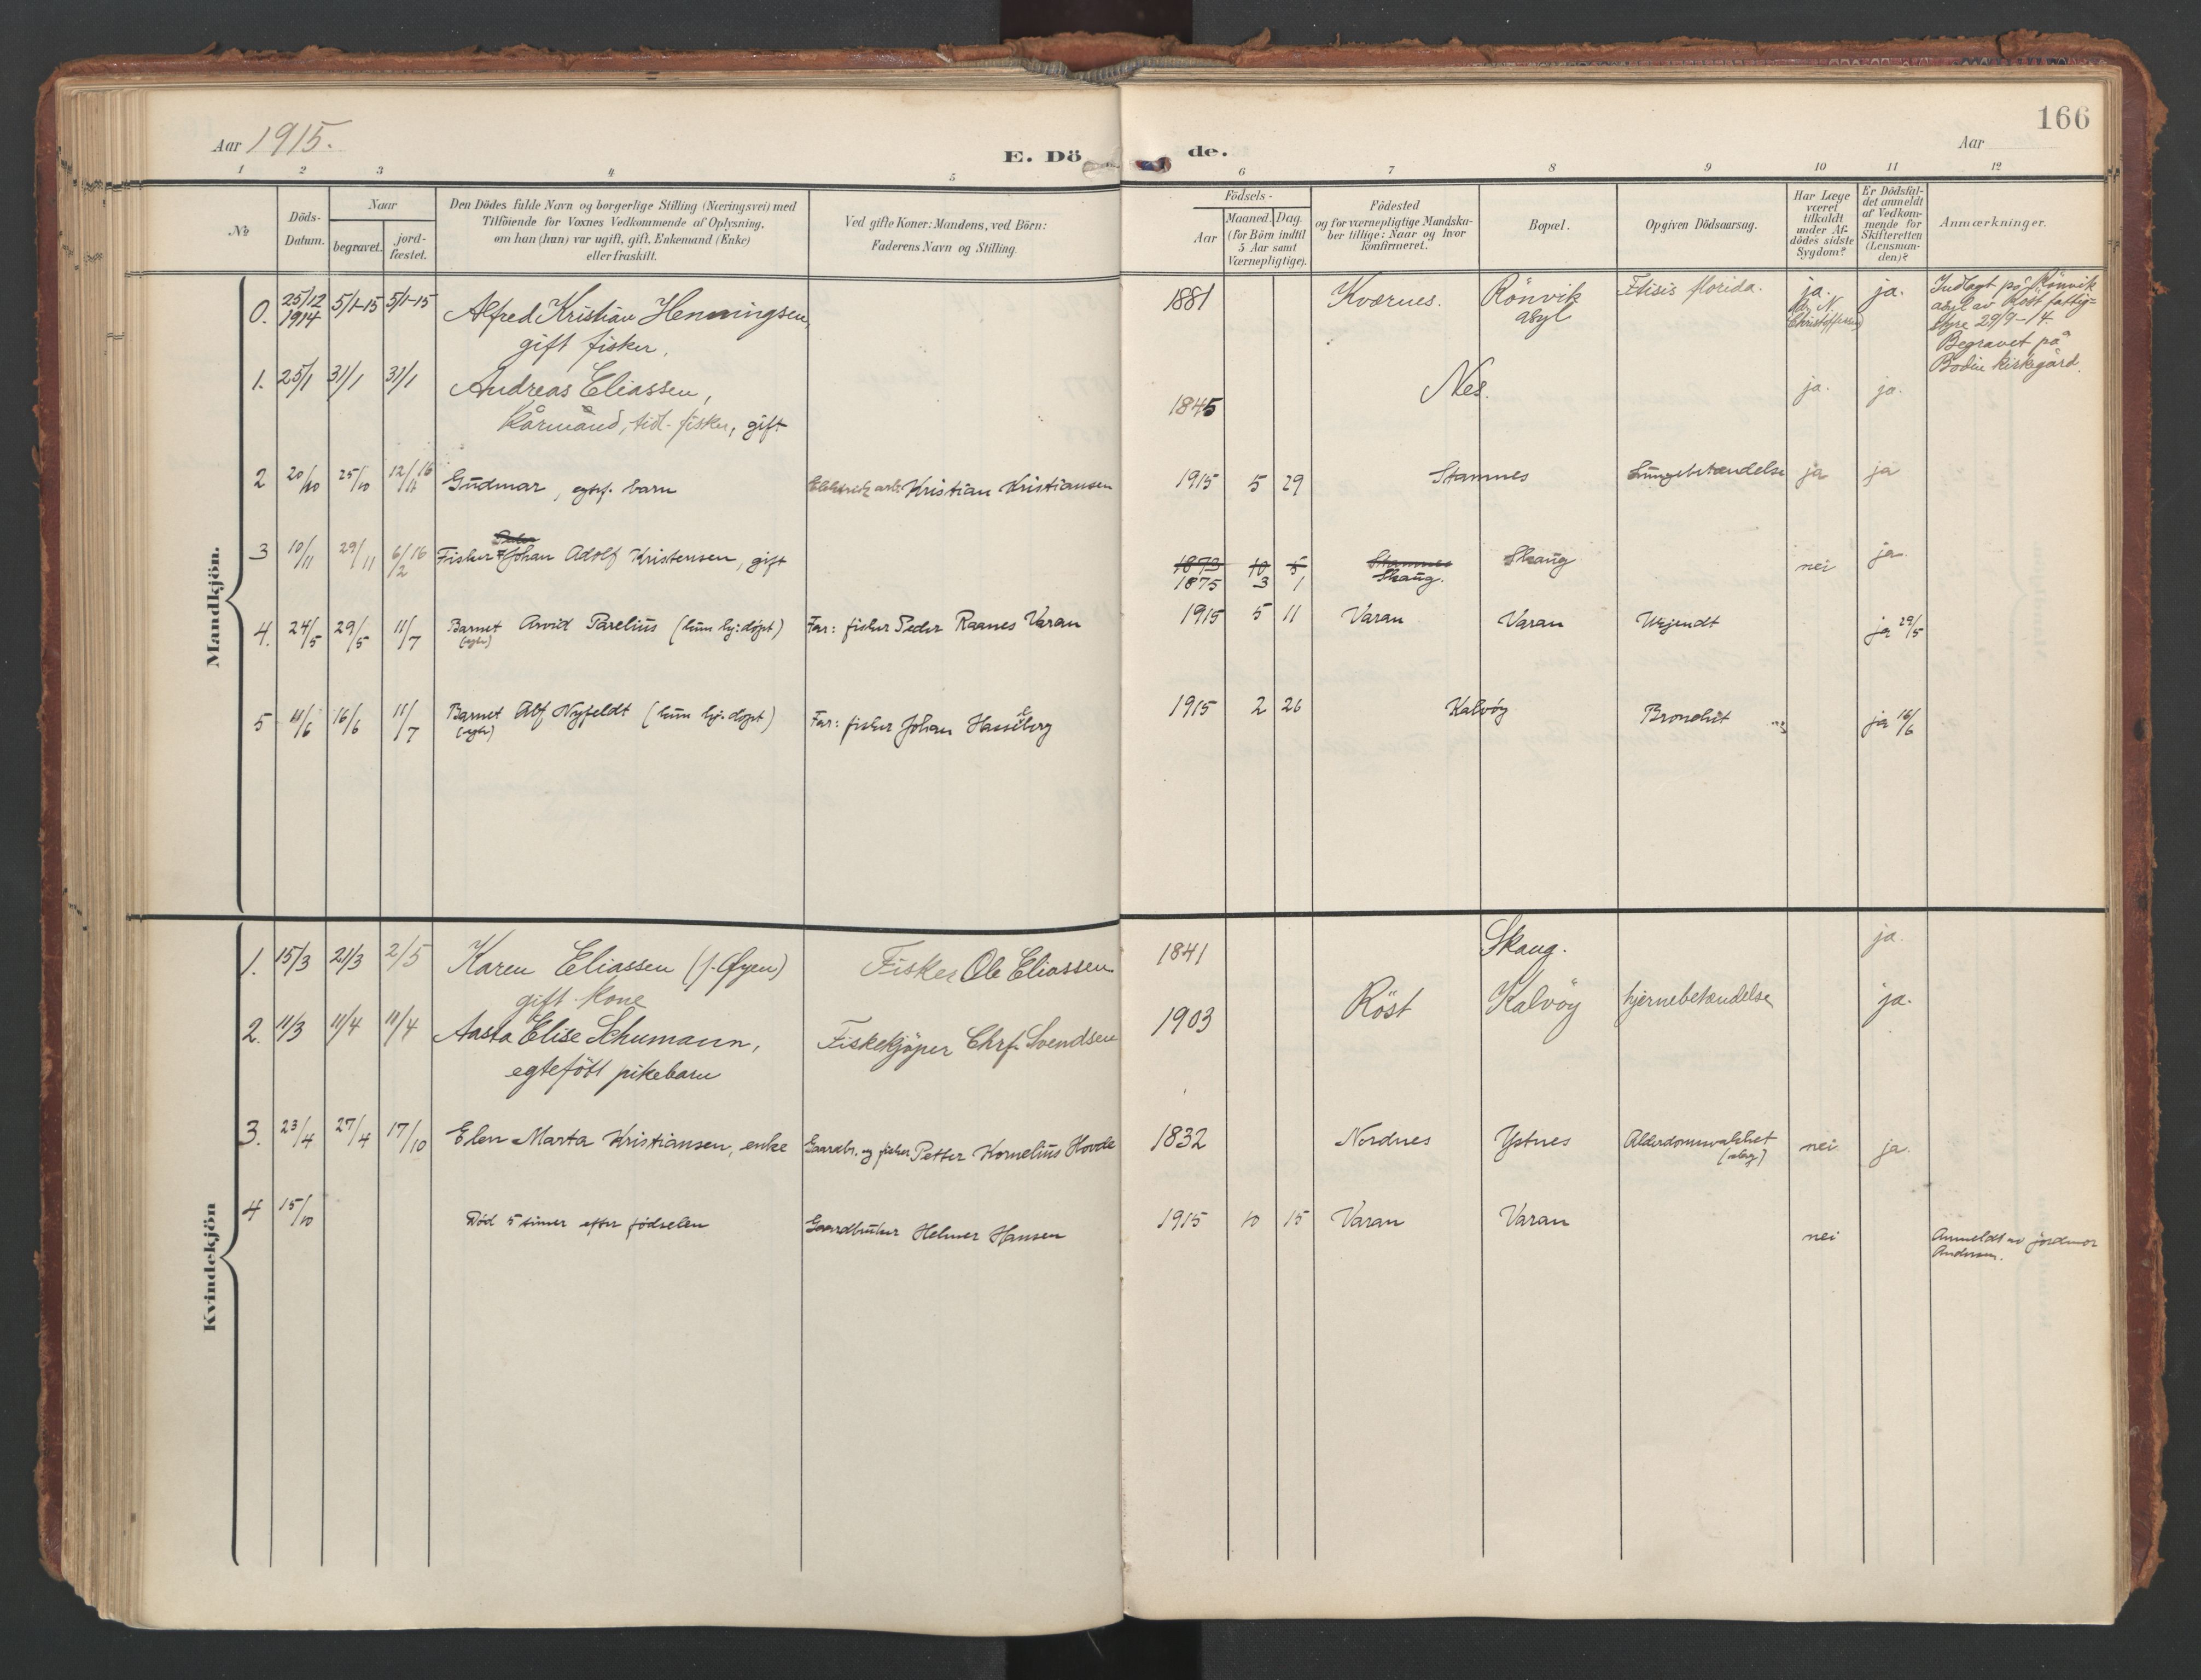 166
Aar 1915.
E. Dö
de.
Aar
1 2 3 4 5 6 7 8 9 10 11 12
№
Döds-
Datum.
Naar
begravet.
jord-
fæstet.
Den Dödes fulde Navn og borgerlige Stilling (Næringsvei) med
Tilföiende for Voxnes Vedkommende af Oplysning,
om han (hun) var ugift, gift, Enkemand (Enke)
eller fraskilt.
Ved gifte Koner: Mandens, ved Börn:
Faderens Navn og Stilling.
Födsels-
Aar
Maaned. Dag.
(for Börn indtil
5 Aar samt
Værnepligtige).
Födested
og for værnepligtige Mandska-
ber tillige: Naar og hvor
konfirmeret.
Bopæl.
Opgiven Dödsaarsag.
Har Læge
været
tilkaldt
under Af-
dödes sidste
Sygdom?
Er Dödsfal-
det anmeldt
af Vedkom-
mende for
Skifteretten
(Lensman-
den)?
Anmærkninger.
Mandkjön.
0. 25/12 5/1-15 5/1-15 Alfred Kristian Henningsen, 1881 Kværnes. Rönvik Ftisis florida. ja. ja. Indlagt på Rönvik
1914 gift fisker. asyl N. asyl av Röst fattig=
Christoffersen styre 29/9-14.
Begravet på
Bodin kirkegård.
1. 25/1 31/1 31/1 Andreas Eliassen, 1845 Nes. ja. ja.
Kårmand, tid. fisker, gift
2 20/10 25/10 12/11 16 Gudmar, egtef. barn Elektrik arb. Kristian Kristiansen 1915 5 29 Stamnes Lungebetændelse ja ja
3 10/11 29/11 6/2 16 Fisker Johan Adolf Kristensen, gift 1873 10 5 Stamnes Skaug nei ja
1875 3 1 Skaug.
4. 24/5 29/5 11/7 Barnet Arvid Parelius (kun hj: døpt) Far: fisker Peder Raanes Varan 1915 5 11 Varan Varan Ukjendt ja 29/5
(egte)
5 11/6 16/6 11/7 Barnet Alf Nyfeldt (kun hj. døpt) Far: fisker Johan Hasselberg 1915 2 26 Kalvöy Bronchit ja 16/6
(egte)
Kvindekjön
1. 15/3 21/3 2/5 Karen Eliassen (f. Øyen) Fisker Ole Eliassen 1841 Skaug. ja.
gift kone
2. 11/3 11/4 11/4 Aasta Elise Schumann, Fiskekjöper Chrf. Svendsen 1903 Röst Kalvöy hjernebetændelse ja.
egtefött pikebarn
3. 23/4 27/4 17/10 Elen Marta Kristiansen, enke Gaardbr. og fisker Petter Kornelius Hovde 1832 Nordnes Ystnes Alderdomssvakhet nei ja.
(slag)
4 15/10 Död 5 timer efter födselen Gaardbruker Helmer Hansen 1915 10 15 Varan Varan nei Anmeldt av jordmor
Andersen.